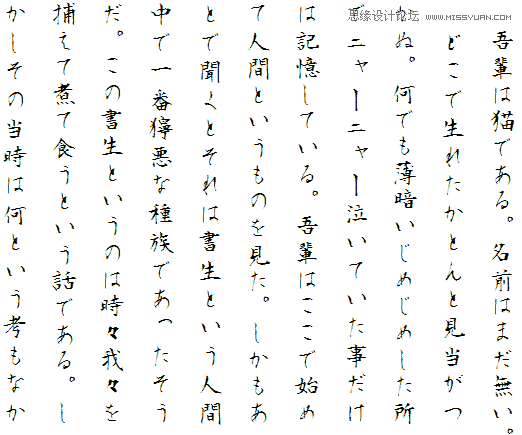 思缘设计论坛 WWW.MISSYUAN.COM
吾輩は猫である。名前はまだ無い。
どこで生れたかとんと見当がつ
かぬ。何でも薄暗いじめじめした所
でニャーニャー泣いていた事だけ
は記憶している。吾輩はここで始め
て人間というものを見た。しかもあ
とで聞くとそれは書生という人間
中で一番獰悪な種族であったそう
だ。この書生というのは時々我々を
捕えて煮て食うという話である。し
かしその当時は何という考もなか